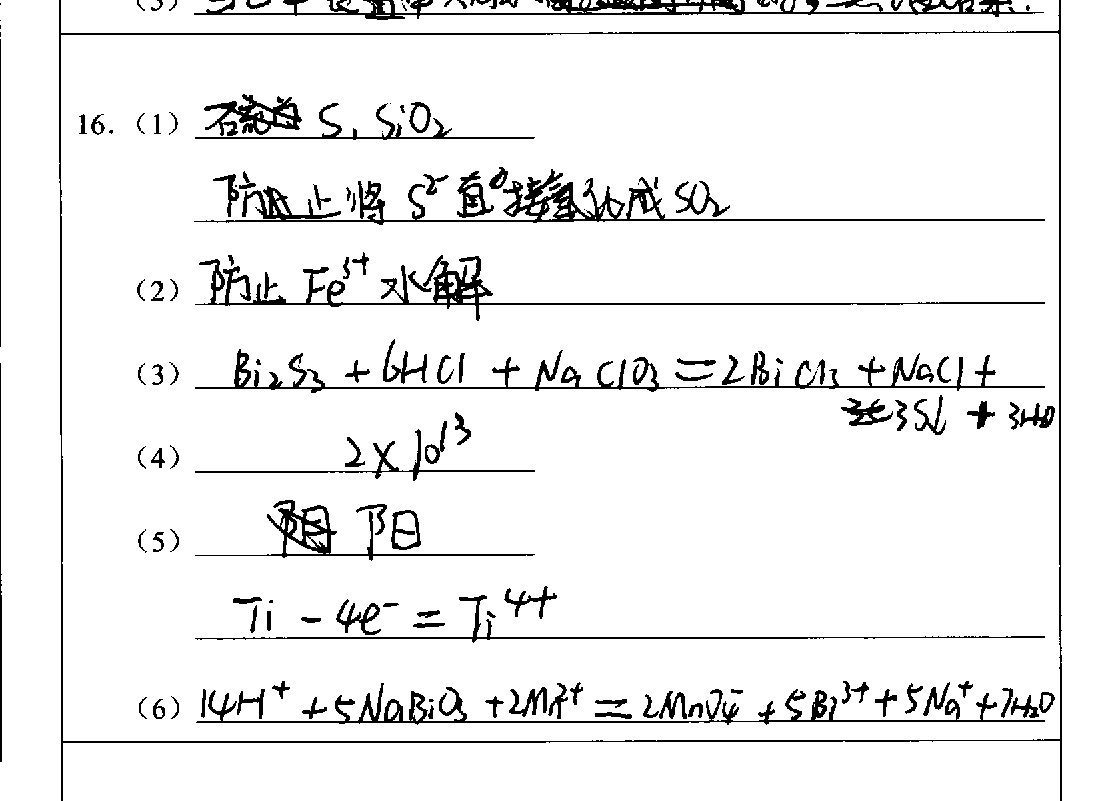 (3)
16. (1) S、SiO₂
防止将 S²⁻ 直接氧化成 SO₂
(2) 防止 Fe³⁺ 水解
(3) Bi₂S₃ + 6HCl + NaClO₃ = 2BiCl₃ + NaCl +
3S↓ + 3H₂O
(4) 2×10¹³
(5) 阳
Ti - 4e⁻ = Ti⁴⁺
(6) 14H⁺ + 5NaBiO₃ + 2Mn²⁺ = 2MnO₄⁻ + 5Bi³⁺ + 5Na⁺ + 7H₂O